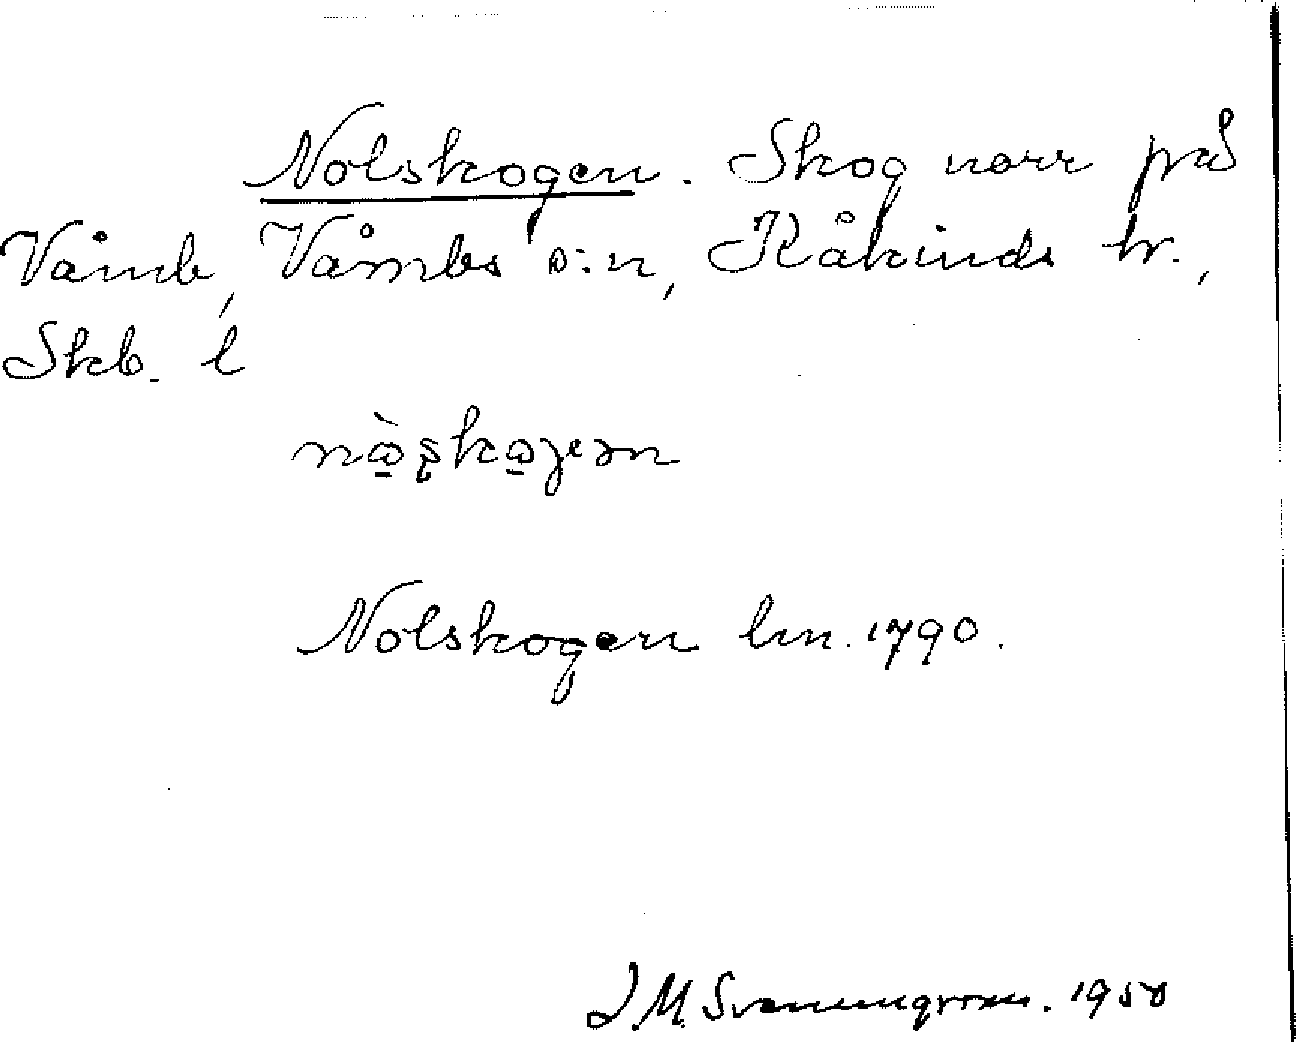 Nolskogen. Skog norr på
Våmb, Våmbs s:n, Kåkinds hr.,
Skb. l
Nolskogen lm. 1790.
J. M. Svennungsson. 1950